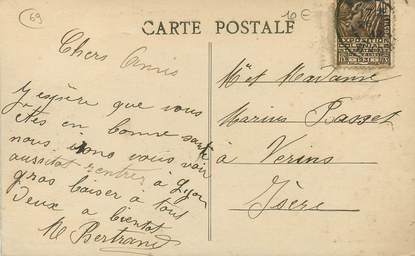 69
CARTE POSTALE
10 €
Chers Amis
J'espère que vous
êtes en bonne santé
nous vous voir
aussitot rentrez à Lyon
gros baiser à tout
deux a bientot
M Bertrand
Mr et Madame
Marius Basset
à Verins
Isère
EXPOSITION
COLONIALE
1931